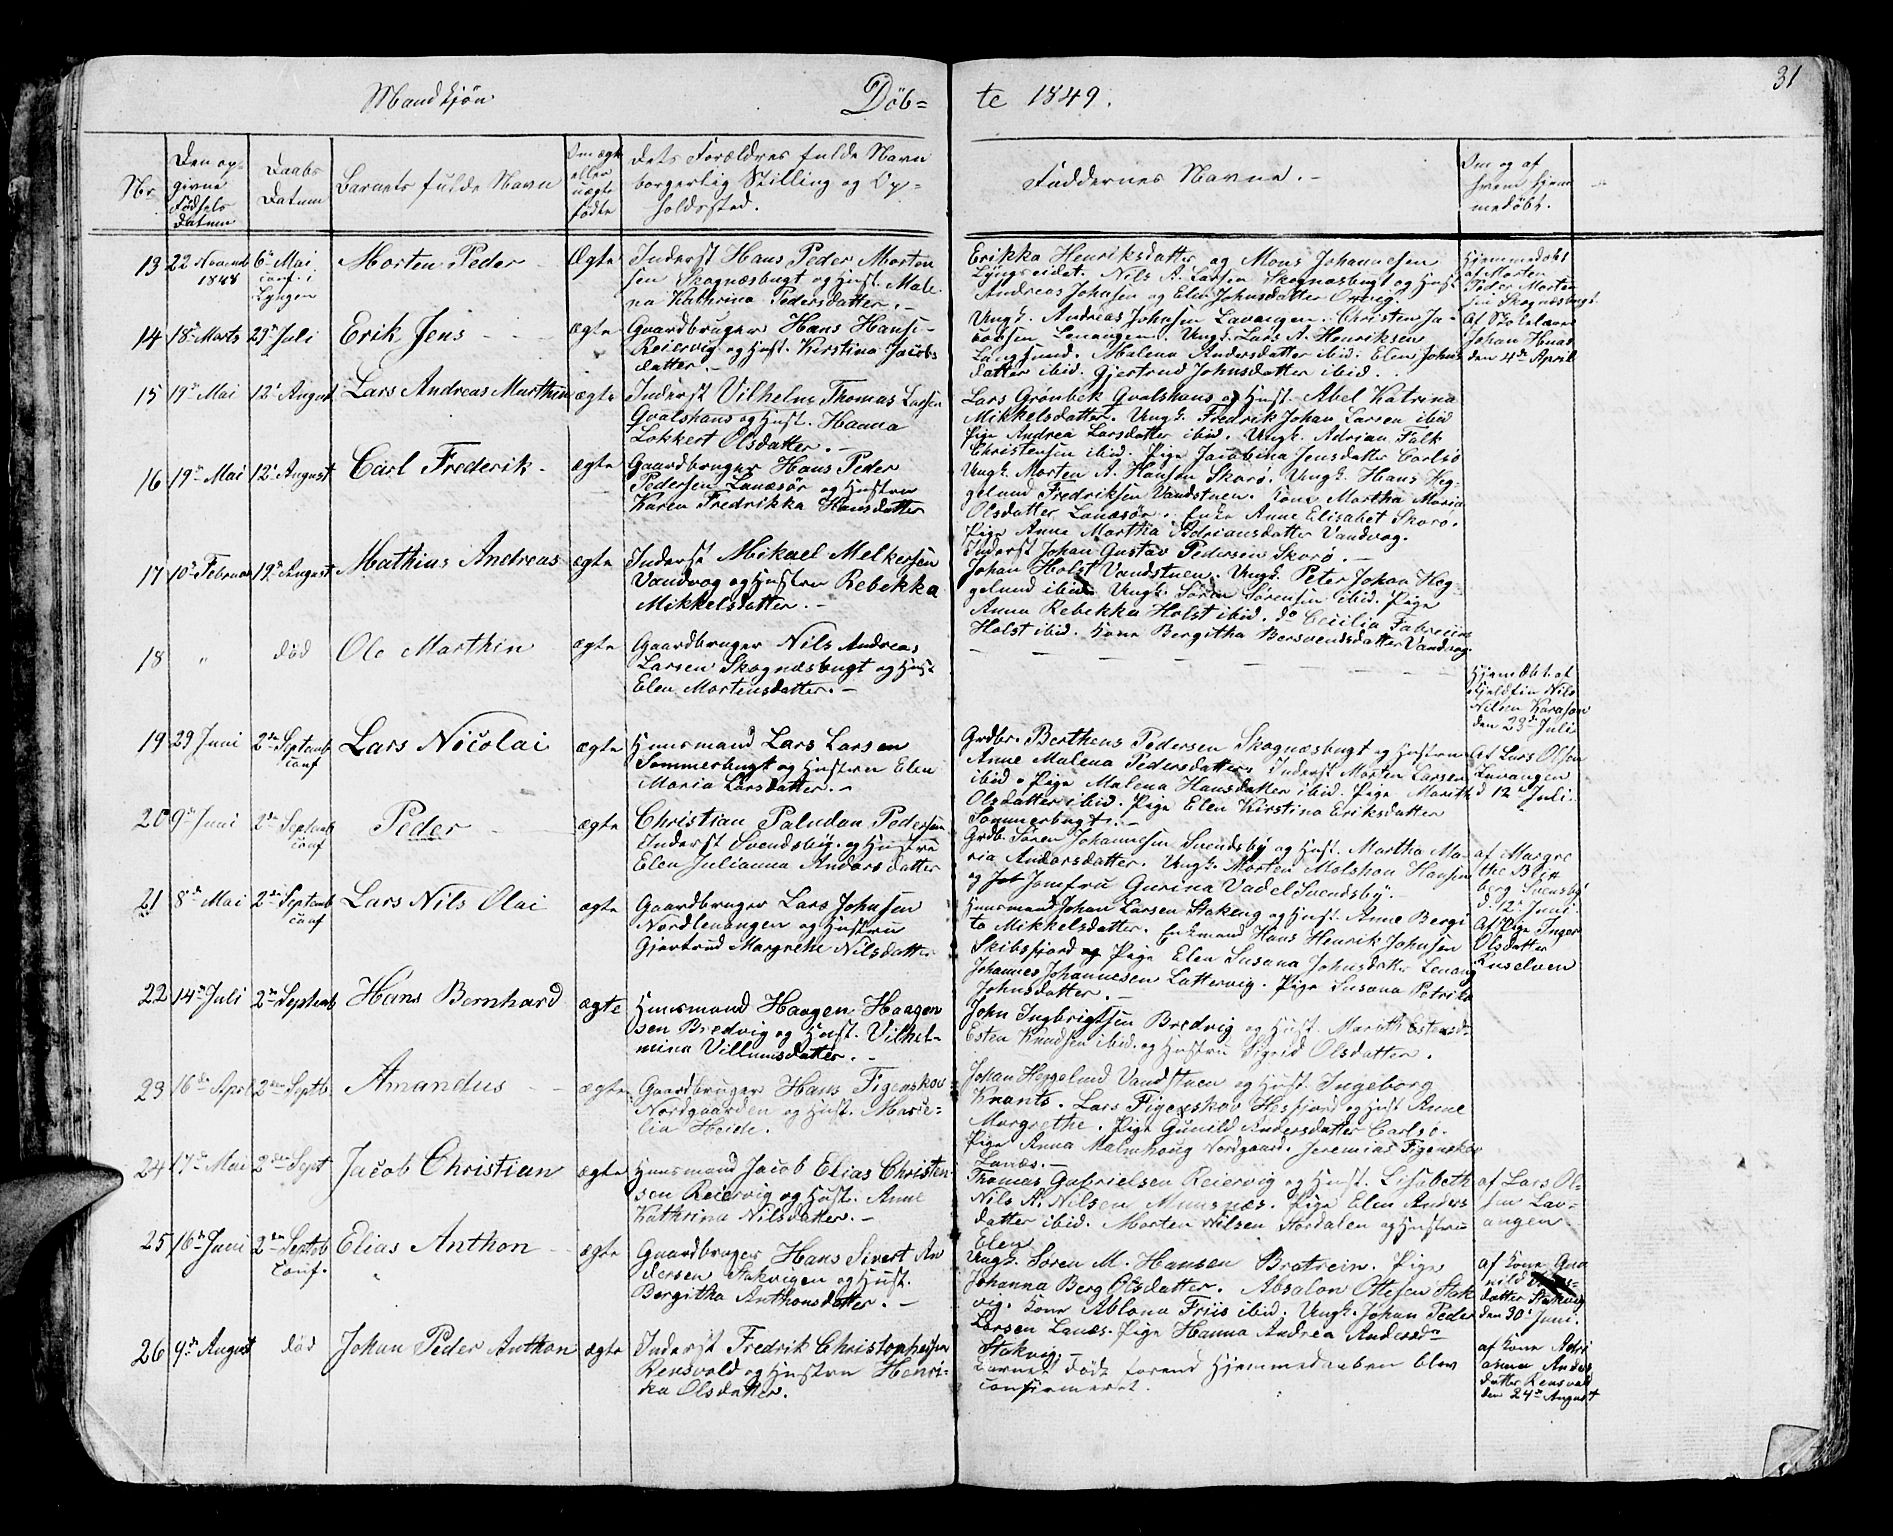 Mandkjøn Døb= te 1849. 31
Nr.
Den op-
givne
Fødsels
Datum
Daabs
Datum
Barnets fulde Navn
Om ægte
eller
uægte
fødte
Dets Forældres fulde Navn
borgerlig Stilling og Op=
holdssted.
Faddernes Navne.-
Om og af
hvem hjem
medøbt.
13 22 Novemb 1848
6te Mai
conf. i
Lyngen
Morten Peder
Ægte
Inderst Hans Peder Morten
sen Skognæsbugt og Hust. Male
na Kathrina Pedersdatter.-
Erikka Henriksdatter og Mons Johannesen
Lyngseidet. Nils A. Larsen Skognæsbugt og Hust
Andreas Johnsen og Elen Johnsdatter
Hjemmedøbt
af Morten
Peder Morten
sen Skognæsbugt.
14 18de Marts 29de Juli Erik Jens ægte
Gaardbruger Hans Hansi-
Reiervig og Hust. Kirstina Jacobs
datter.-
Ungk. Andreas Johnsen Lavangen. Christen Ja-
cobsen Lenangen. Ungk. Lars A. Henriksen
Langsund. Malena Andersdatter ibid. Elen Johns
datter ibid. Gjertrud Johnsdatter ibid.
Af Skolelærer
Johan
den 4de April
15 19de Mai 12te August Lars Andreas Marthin ægte
Inderst Vilhelm Thomas Larsen
Qvalshaus og Hust. Hanna
Lokkert Olsdatter.-
Lars Grønbek Qvalshaus og Hust. Abel Katrina
Mikkelsdatter. Ungk. Fredrik Johan Larsen ibid
Pige Andrea Larsdatter ibid. Ungk. Adrian Falk
Christensen ibid. Pige Jacobina Jensdatter Carlsø
16 19de Mai 12te August Carl Frederik - ægte
Gaardbruger Hans Peder
Pedersen Lanæsør og Hustru
Karen Fredrikka Hansdatter
Ungk. Morten A. Hansen Skorø. Ungk. Hans Heg-
gelund Fredriksen Vandstuen. Kone Martha Maria
Olsdatter Lanæsør. Enke Anne Elisabet Skorø.
Pige Anne Martha Adriansdatter Vandvog.
Inderst Johan Gustav Pedersen Skorø.-
17 10de Februar 19de August Mathias Andreas ægte
Inderst Mikael Melkersen
Vandvog og Hustru Rebekka
Mikkelsdatter.-
Johan Holst Vandstuen. Ungk. Peter Johan Heg-
gelund ibid. Ungk. Søren Sørensen ibid. Pige
Anna Rebekka Holst ibid. do Cecilia Fabricius
Holst ibid. Kone Bergitha Bersvendsdatter Vandvog
18 " død Ole Marthin ægte
Gaardbruger Nils Andreas
Larsen Skognæsbugt og Hust
Elen Mortensdatter.-
Hjemdøbt af
Fjeldfin Nils
Nilsen
den 23de Juli
19 29 Juni
2den Septemb
conf
Lars Nicolai
ægte
Huusmand Lars Larsen
Sommerbugt og Hustru Elen
Maria Larsdatter.-
Grdbr. Berthens Pedersen Skognæsbugt og Hustru
Anne Malena Pedersdatter. Inderst Morten Larsen
ibid. Pige Malena Hansdatter ibid. Pige Marith
Olsdatter ibid. Pige Elen Kirstina Eriksdatter
Sommerbugt.-
Af Lars Olsen
Lavangen
d 12te Juli.
20 9de Juni
2den Septemb
conf
Peder
ægte
Christian Paludan Pedersen
Inderst Svendsby. og Hustru
Elen Julianna Andersdatter
Grdb. Søren Johannesen Svendsby og Hust. Martha Ma-
ria Andersdatter. Ungk. Morten Molshon Hansen
og Job Jomfru Gurina Vadel Svendsby.
af Margre
the
berg Svensby
d 12te Juni.
21 8de Mai
2den Septemb
conf
Lars Nils Olai
ægte
Gaardbruger Lars Johnsen
Nordlenangen og Hustru
Gjertrud Margrethe Nilsdatter
Huusmand Johan Larsen Stakeng og Hust. Anne Bergi
ta Mikkelsdatter. Enkmand Hans Henrik Johnsen
Skibsfjord og Pige Elen Susana Johnsdatter Lenang
Johannes Johannesen Lattervig. Pige Susana Petrika
Johnsdatter.-
Af Pige Inger
Olsdatter
22 14de Juli 2den Septemb Hans Bernhard ægte
Huusmand Haagen Haagen
sen Bredvig og Hust. Vilhel-
mina Villumsdatter.-
John Ingbrigtsen Bredvig og Hust. Marith Estensd-
Esten Knudsen ibid. og Hustru Sigrid Olsdatter.
23 16de April 2den Septb Amandus ægte
Gaardbruger Hans Figenskov
Nordgaarden og Hust. Marse-
lia Heide.
Johan Heggelund Vandstuen og Hust. Ingeborg
Krants. Lars Figenskov Hesfjord og Hust Anne
Margrethe. Pige Gunild Andersdatter Carlsø.
Pige Anna Malmhoug Nordgaard. Jeremias Figenskov
Lanæs.-
24 17de Mai 2den Sept Jacob Christian ægte
Huusmand Jacob Elias Christen
sen Reiervig og Hust. Anne
Kathrina Nilsdatter.-
Thomas Gabrielsen Reiervig og Hust. Lisabeth
Nils N. Nilsen Pige Elen Anders
datter ibid. Morten Nilsen Stordalen og Hustru
Elen
af Lars Ol-
sen Lav-
angen
25 16de Juni
2den Septb
Conf.
Elias Anthon
ægte
Gaardbruger Hans Sivert An
dersen Stakvigen og Hust.
Bergitha Anthonsdatter.-
Ungk. Søren M. Hansen Bratrein. Pige
Johanna Berg Olsdatter. Absalon Ottesen Stak
vig. Kone Ablona Friis ibid. Ungk. Johan Peder
Larsen Lanæs. Pige Hanna Andrea Andersd
Stakvig.-
af Kone Gun
nild
datter Stakvig
den 30te Juni.
26 9de August død Johan Peder Anthon ægte
Inderst Fredrik Christophersen
Rensvold og Hustru Henri-
ka Olsdatter.
Barnet døde forend Hjemmedaaben blev
confirmeret.
af Kone Adri
anna Anders
datter Rensvold
den 24de August